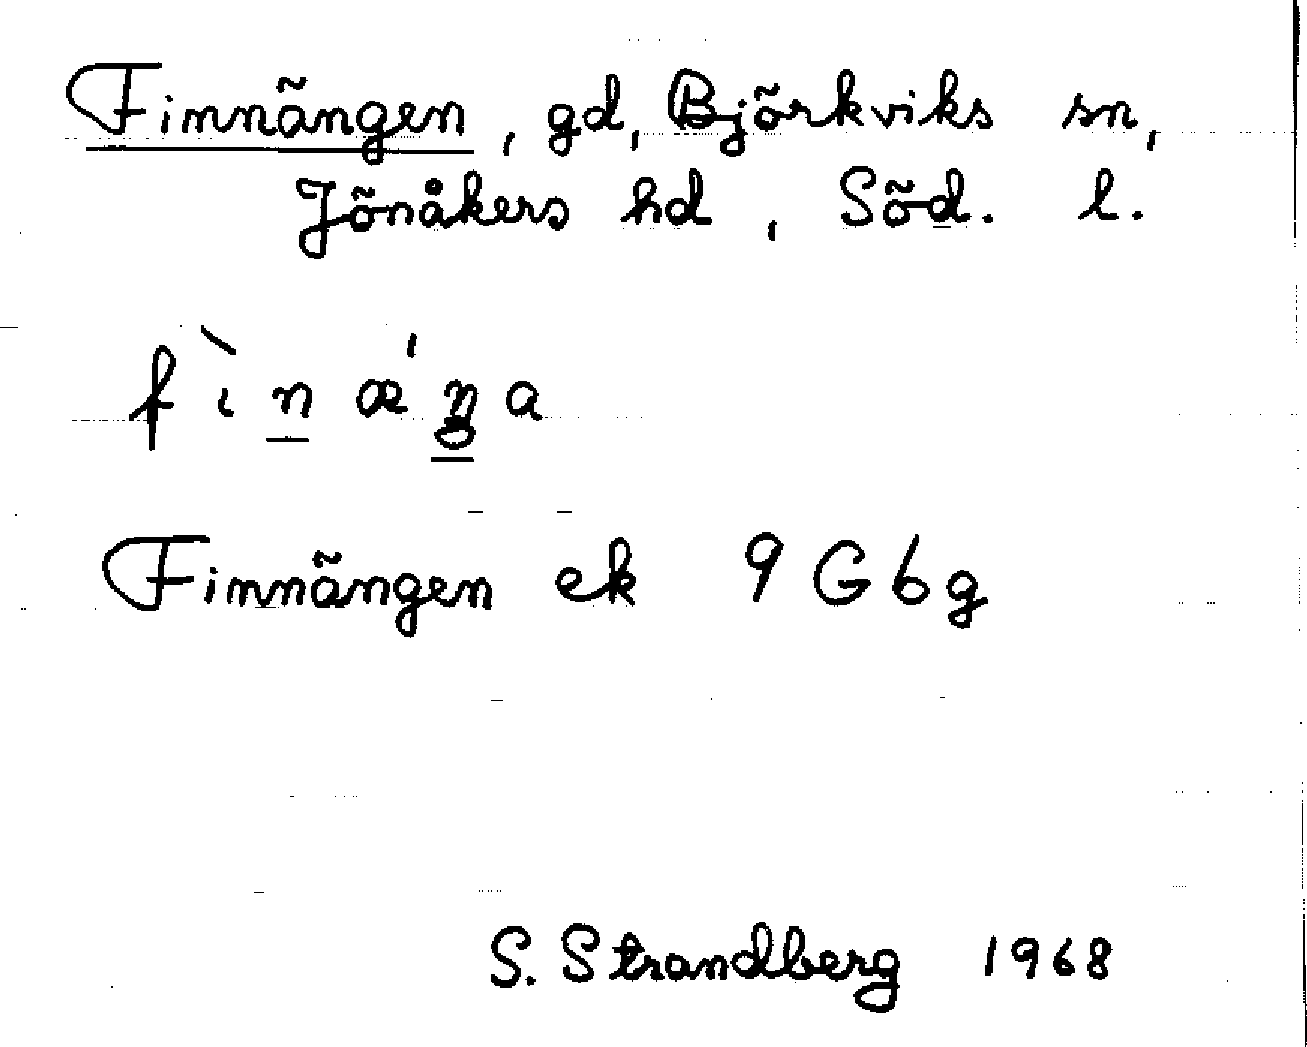 Finnängen, gd, Björkviks sn,
Jönåkers hd, Söd. l.
fìnǽŋa
Finnängen ek 9 G 6 g
S. Strandberg 1968